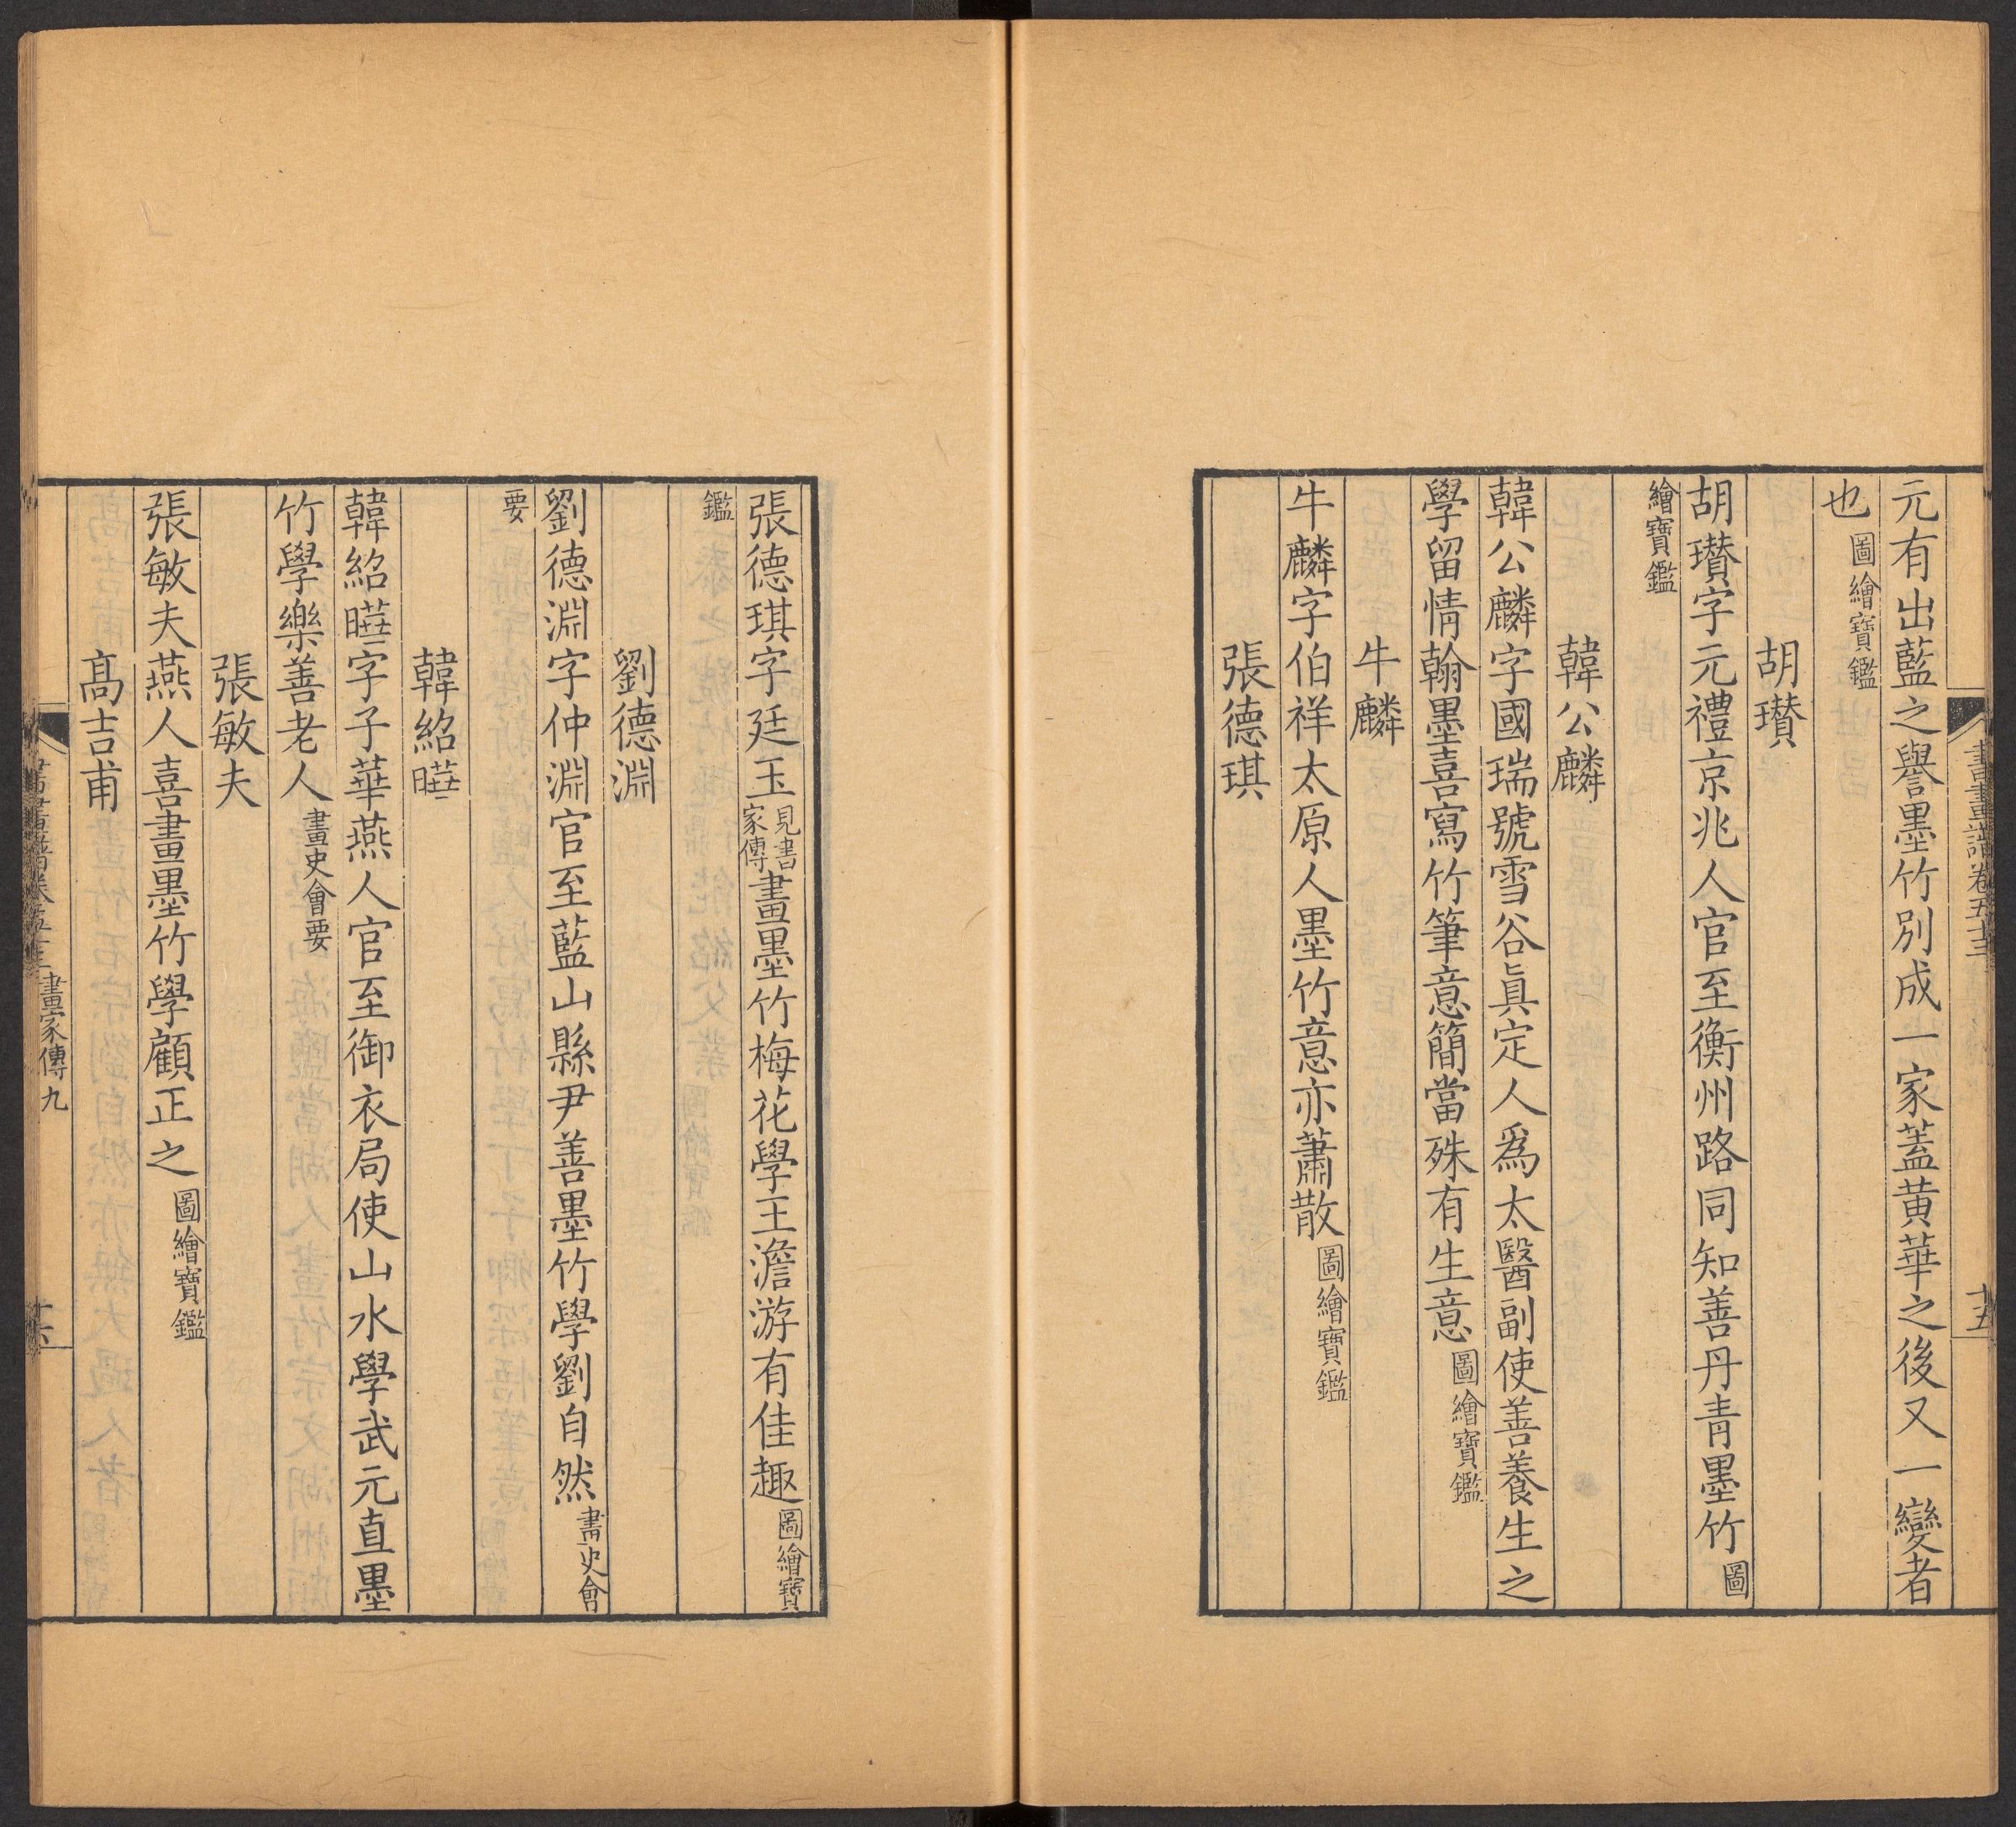 元有出藍之譽墨竹別成一家蓋黄華之後又一變者
也圖繪寶鑑
胡瓚
胡瓚字元禮京兆人官至衡州路同知善丹青墨竹圖
繪寶鑑
韓公麟
韓公麟字國瑞號雪谷眞定人爲太醫副使善養生之
學留情翰墨喜寫竹筆意簡當殊有生意圖繪寶鑑
牛麟
牛麟字伯祥太原人墨竹意亦蕭散圖繪寶鑑
張德琪
書畫譜卷五十三
十五
張德琪字廷玉見書家傳畫墨竹梅花學王澹游有佳趣圖繪寶
鑑
劉德淵
劉德淵字仲淵官至藍山縣尹善墨竹學劉自然畫史會
要
韓紹曄
韓紹曄字子華燕人官至御衣局使山水學武元直墨
竹學樂善老人畫史會要
張敏夫
張敏夫燕人喜畫墨竹學顧正之圖繪寶鑑
高吉甫
畫家傳九
十六